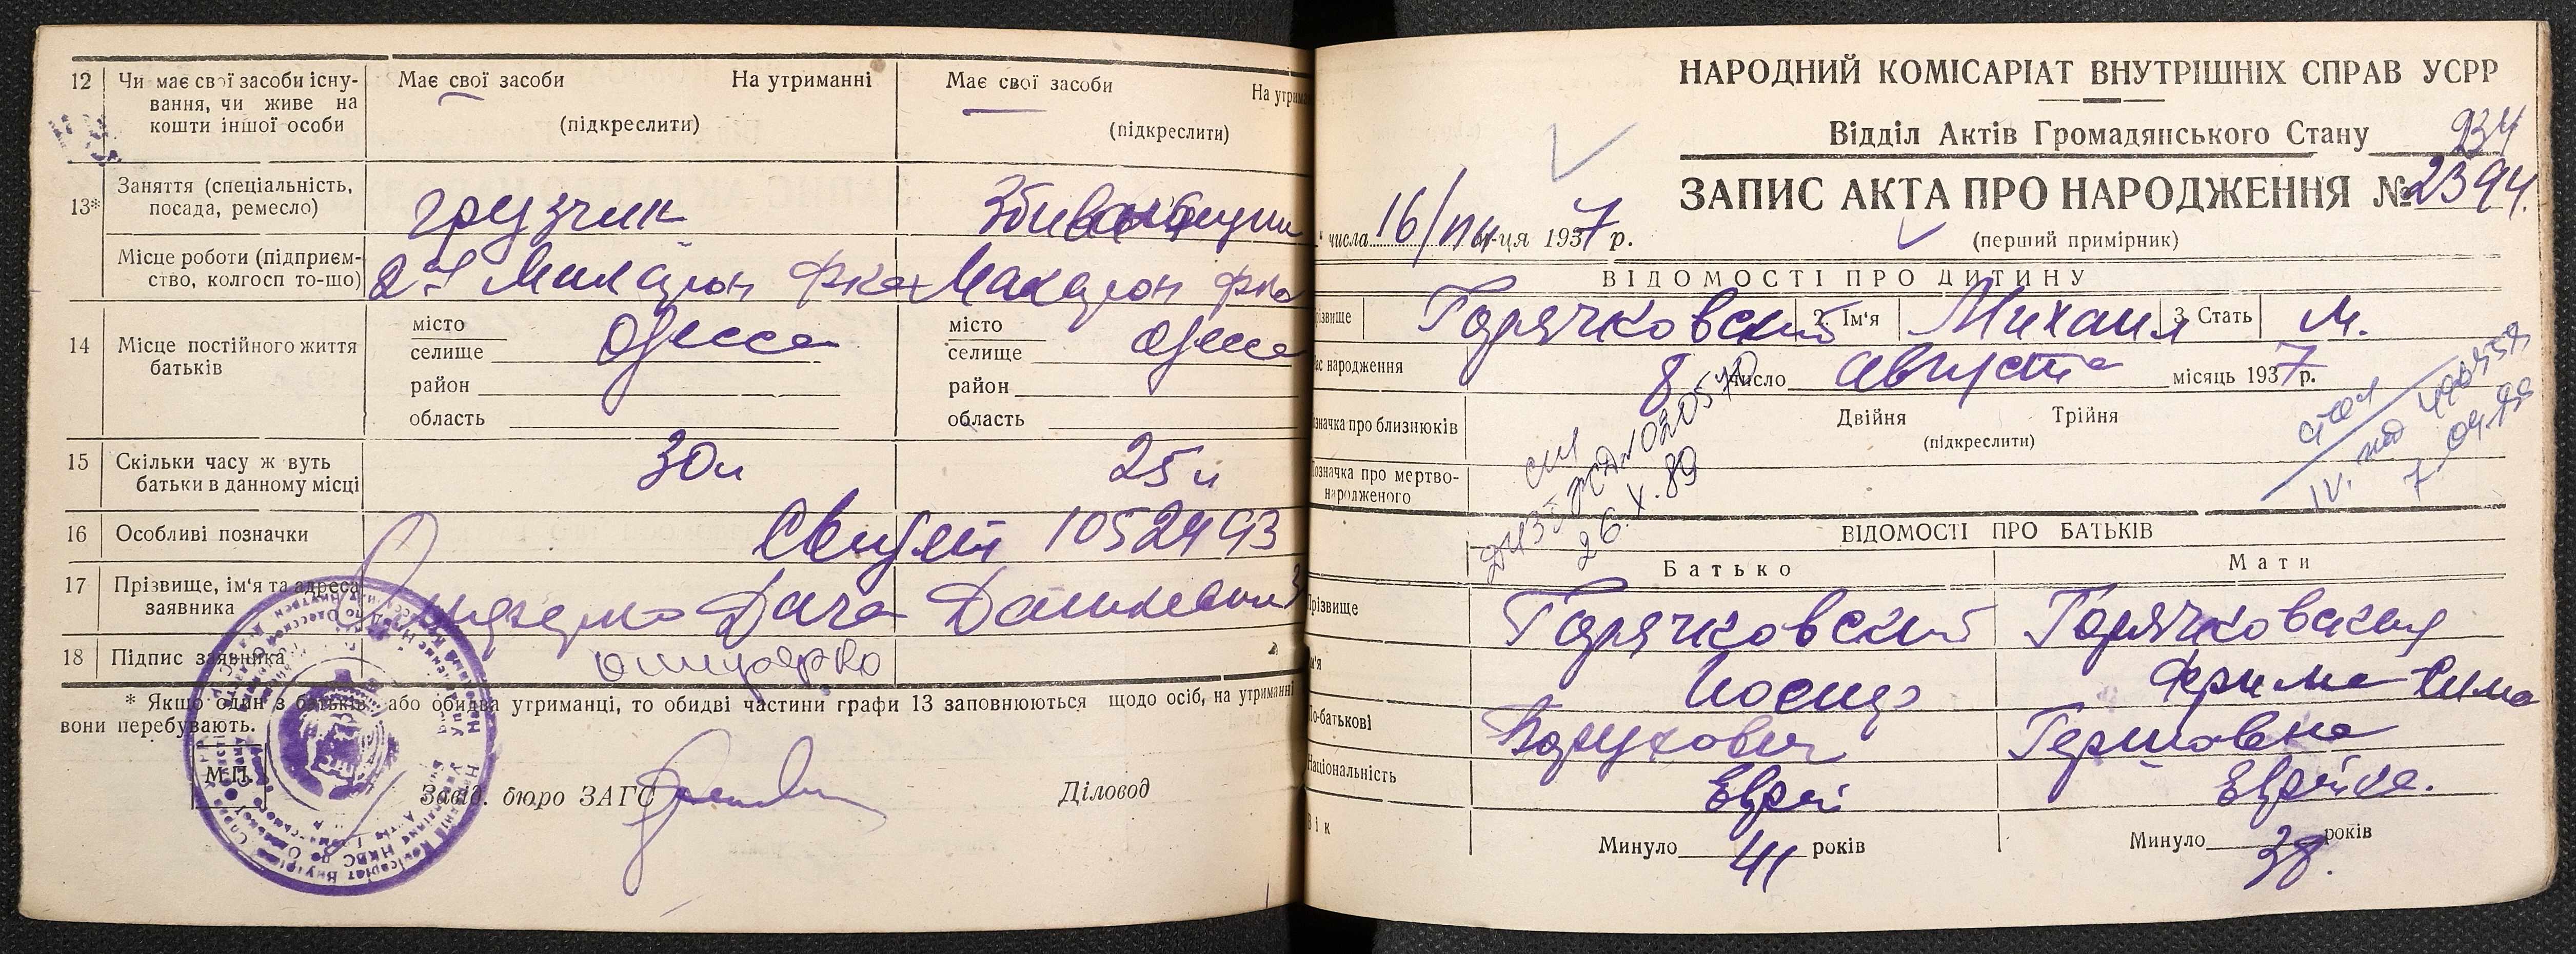 12 Чи має свої засоби існу-
вання, чи живе на
кошти іншої особи
Має свої засоби На утриманні
(підкреслити)
Має свої засоби На утрим
(підкреслити)
13* Заняття (спеціальність,
посада, ремесло)
грузчик
Місце роботи (підприєм-
ство, колгосп то-що)
Макарон ф-ка
14 Місце постійного життя
батьків
місто
селище Одесса
район
область
місто
селище Одесса
район
область
15 Скільки часу ж вуть
батьки в данному місці
30 л 25 л
16 Особливі позначки
1052493
17 Прізвище, ім'я та адреса
заявника
Дача
18 Підпис заявника
* Якщо один з батьків, або обидва утриманці, то обидві частини графи 13 заповнюються щодо осіб, на утриманні
вони перебувають.
М.П.
Завід. бюро ЗАГС Діловод
НАРОДНИЙ КОМІСАРІАТ ВНУТРІШНІХ СПРАВ УСРР
Відділ Актів Громадянського Стану
934
ЗАПИС АКТА ПРО НАРОДЖЕННЯ № 2394.
числа 16/ м-ця 1937 р.
(перший примірник)
ВІДОМОСТІ ПРО ДИТИНУ
різвище Горячковский 2. Ім'я Михаил 3. Стать М.
ас народження 8 число августа місяць 1937 р.
означка про близнюків
Двійня Трійня
(підкреслити)
Позначка про мертво-
народженого
26.X.89
ВІДОМОСТІ ПРО БАТЬКІВ
Батько Мати
Прізвище Горячковский Горячковская
м'я Иосиф Фрима Сима
По-батькові Борухович Гершовна
Національність Еврей Еврейка.
Вік
Минуло 41 років
Минуло 38. років